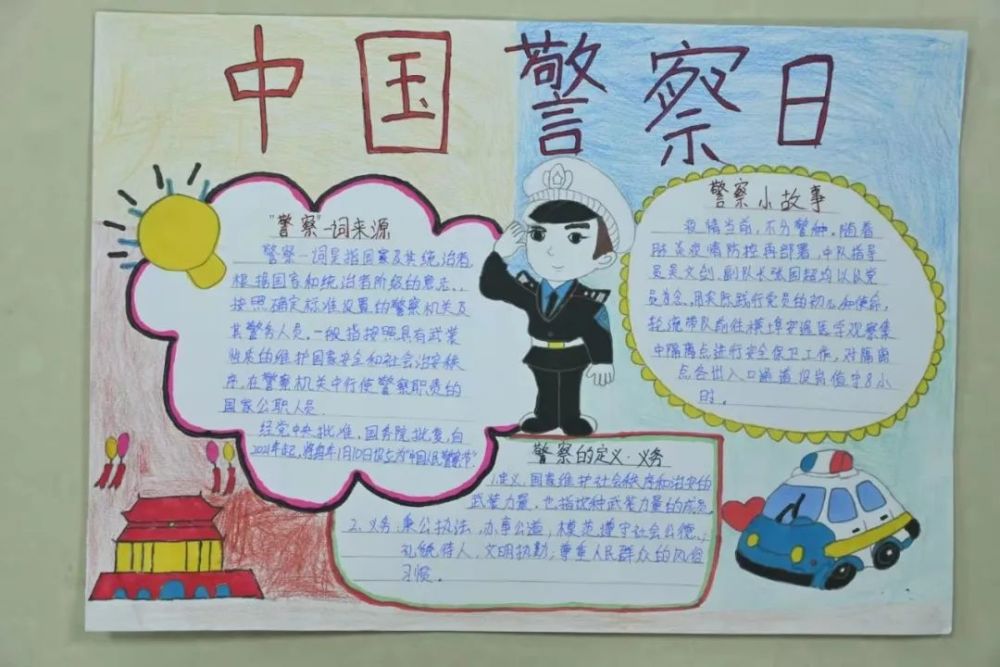 中国警察日
"警察"一词来源
警察一词是指国家及其统治者,
根据国家和统治者阶级的意志、,
按照确定标准设置的警察机关及
其警务人员。一般指按照具有武装
性质的维护国家安全和社会治安秩
序,在警察机关中行使警察职责的
国家公职人员.
经党中央批准,国务院批复,自
2021年起,将每年1月10日设立为"中国人民警察节".
警察小故事
疫情当前,不分警种,随着
肺炎疫情防控再部署,中队指导
员吴文剑、副队长张国超均以从党
员为念,用实际践行党员的初心和使命,
轮流带队前往横埠安通医学观察集
中隔离点进行安全保卫工作,对隔离
点各出入口通道设岗值守8小
时。
警察的定义·义务
1.定义,国家维护社会秩序和治安的
武装力量,也指这种武装力量的成员.
2.义务:秉公执法,办事公道,模范遵守社会公德,;
礼貌待人,文明执勤;尊重人民群众的风俗
习惯。